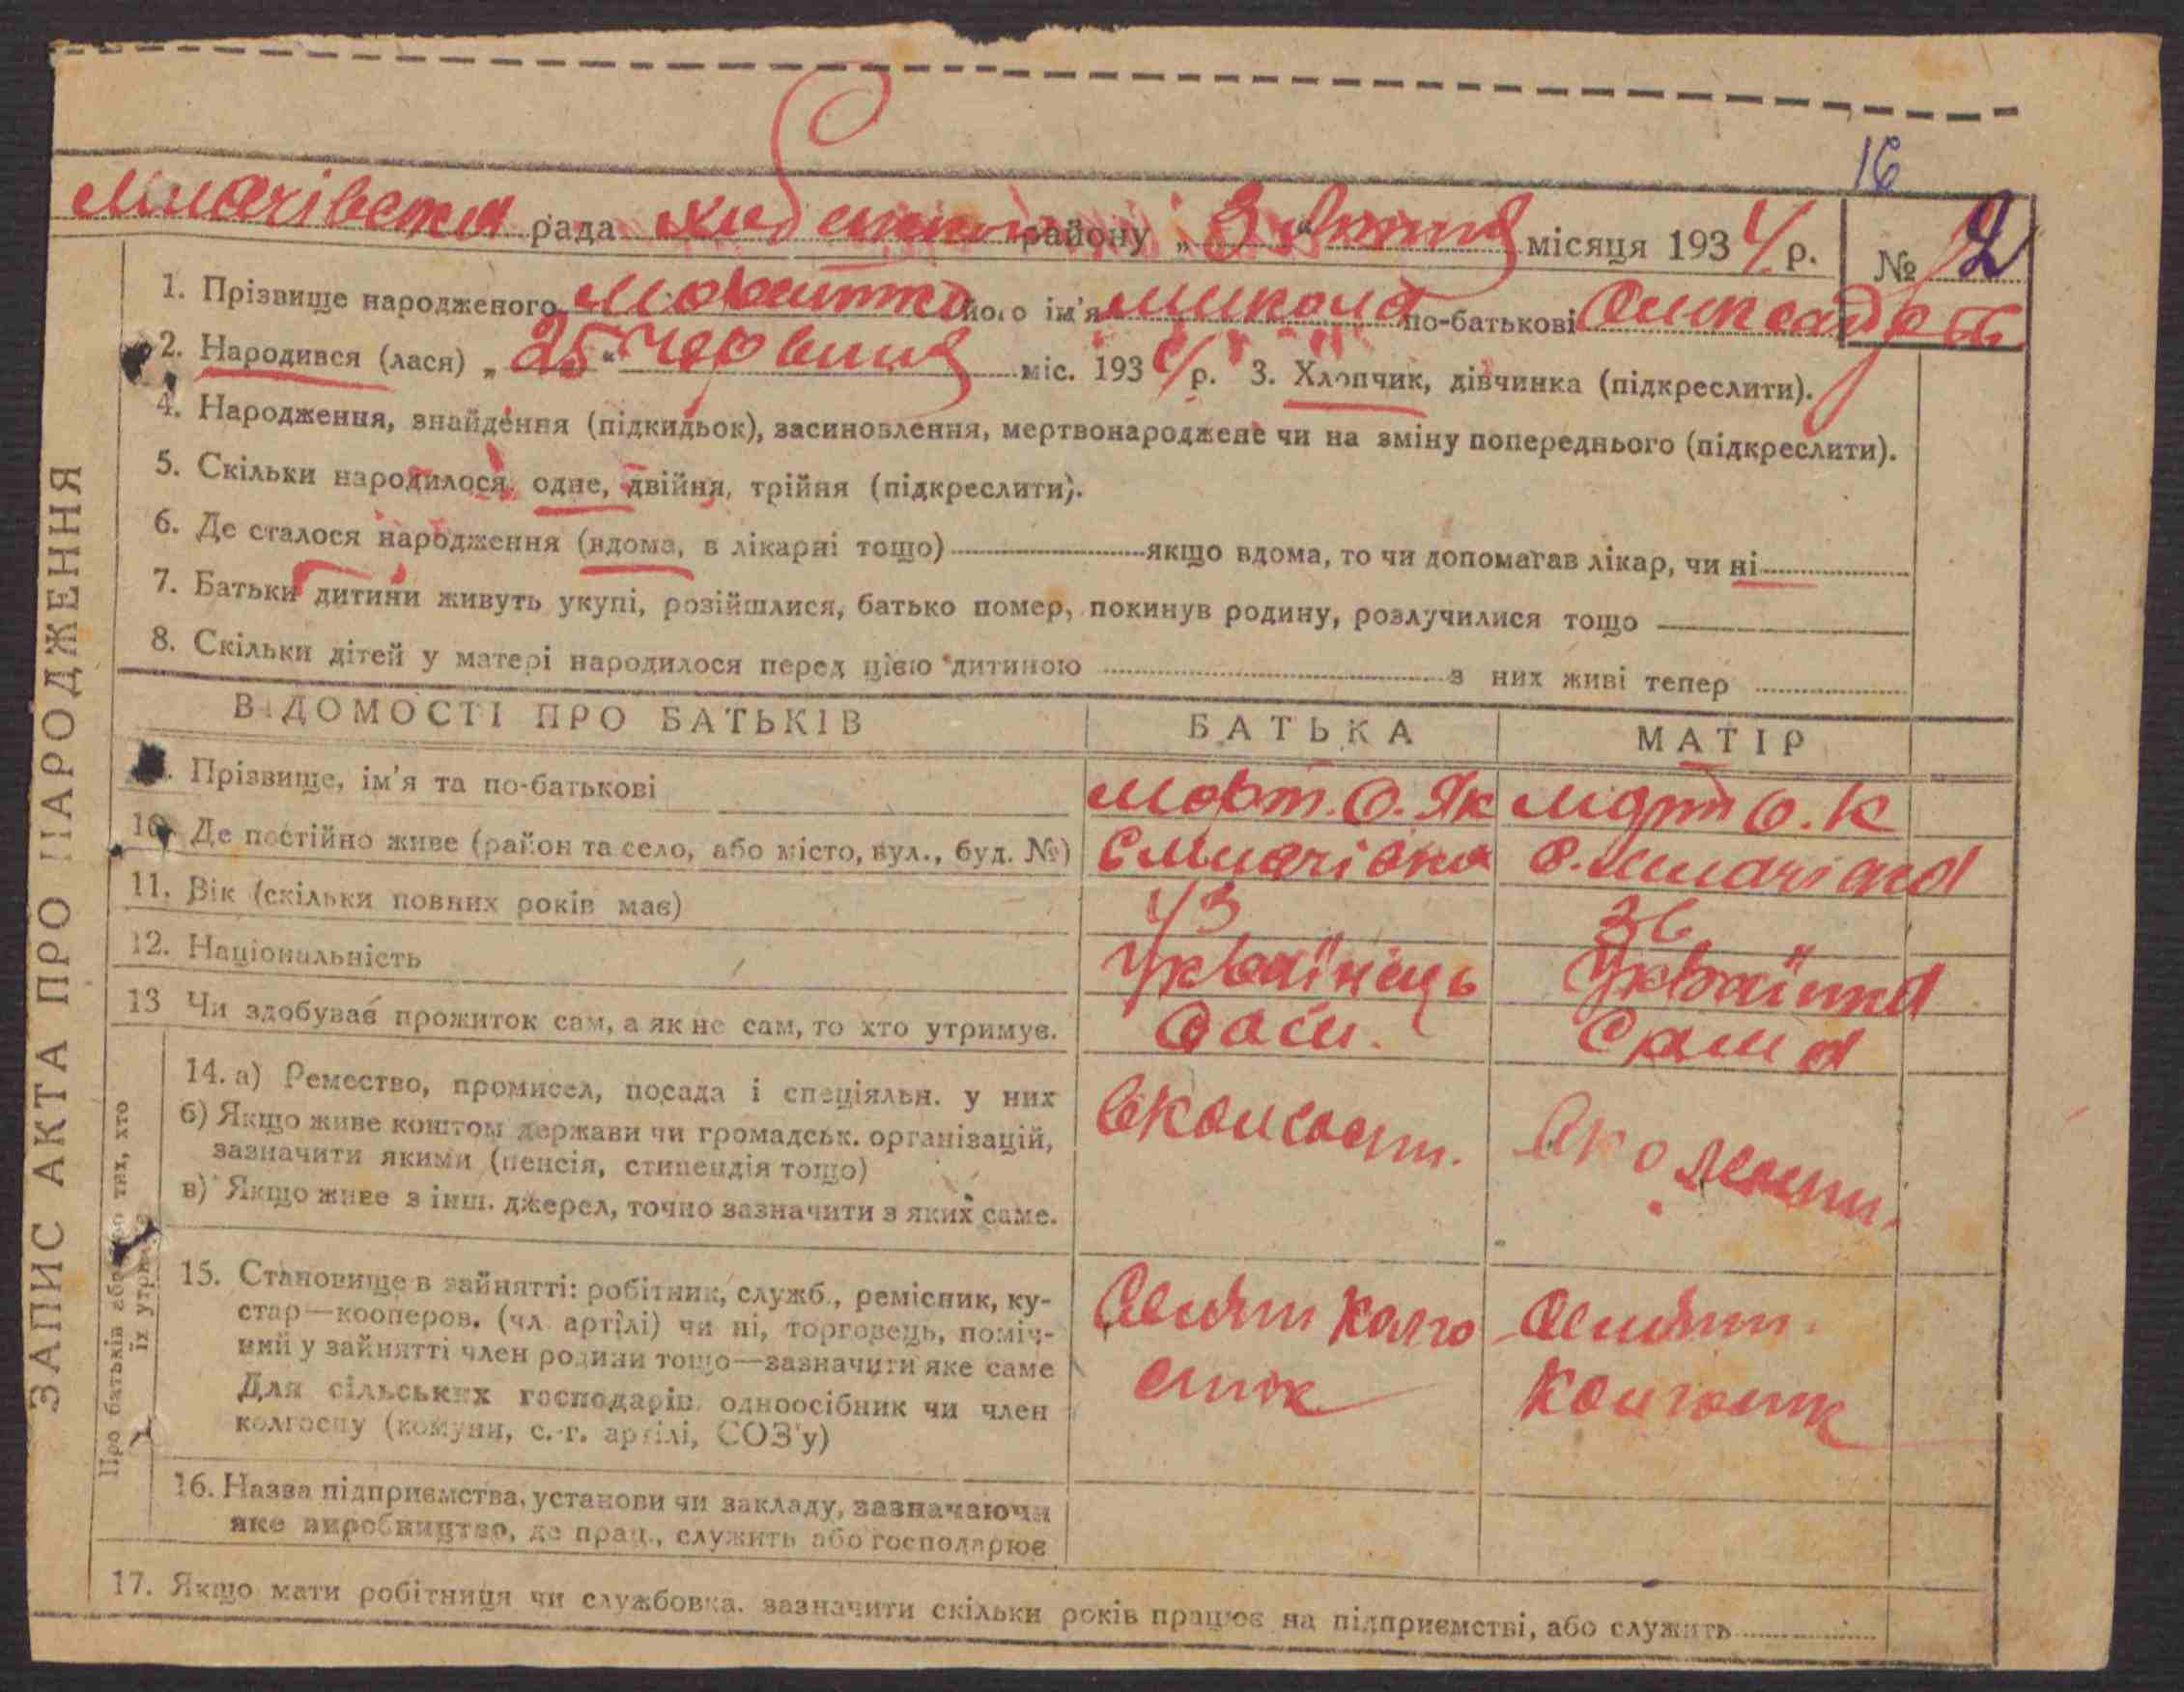 16
рада района „ 3 “ місяця 1934 р. № 2
1. Прізвище народженого його ім'я Микола по-батькові
2. Народився (лася) „ 25 “ Червня міс. 1934 р. 3. Хлопчик, дівчинка (підкреслити).
4. Народження, знайдення (підкидьок), засиновлення, мертвонароджене чи на зміну попереднього (підкреслити).
5. Скільки народилося, одне, двійня, трійня (підкреслити).
6. Де сталося народження (вдома, в лікарні тощо) якщо вдома, то чи допомагав лікар, чи ні
7. Батьки дитини живуть укупі, розійшлися, батько помер, покинув родину, розлучилися тощо
8. Скільки дітей у матері народилося перед цією дитиною з них живі тепер
ВІДОМОСТІ ПРО БАТЬКІВ БАТЬКА МАТІР
Прізвище, ім'я та по-батькові О. Як О. К
10. Де постійно живе (район та село, або місто, вул., буд. №)
11. Вік (скільки повних років має) 43 36
12. Національність Українець Українка
13 Чи здобуває прожиток сам, а як не сам, то хто утримує. Сама
14. а) Ремество, промисел, посада і спеціяльн. у них
б) Якщо живе коштом держави чи громадськ. організацій,
зазначити якими (пенсія, стипендія тощо)
в) Якщо живе з інш. джерел, точно зазначити з яких саме.
15. Становище в зайнятті: робітник, служб., ремісник, ку-
стар—кооперов. (чл. артілі) чи ні, торговець, поміч-
ний у зайнятті член родини тощо—зазначити яке саме
Для сільських господарів: одноосібник чи член
колгоспу (комуни, с.-г. артілі, СОЗ'у)
16. Назва підприємства, установи чи закладу, зазначаючи
яке виробництво, де прац., служить або господарює
17. Якщо мати робітниця чи службовка, зазначити скільки років працює на підприємстві, або служить
ЗАПИС АКТА ПРО НАРОДЖЕННЯ
Про батьків або про тих, хто
їх утримує